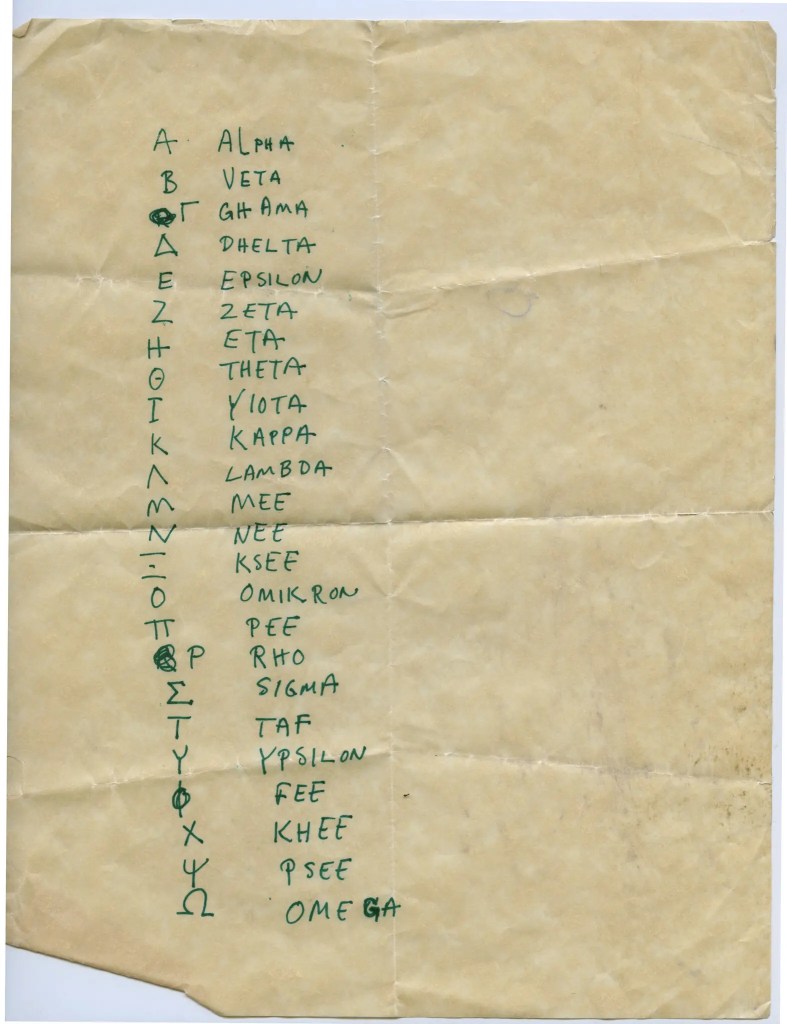 Α ALPHA
Β VETA
Γ GHAMA
Δ DHELTA
Ε EPSILON
Ζ ZETA
Η ETA
Θ THETA
Ι YIOTA
Κ KAPPA
Λ LAMBDA
Μ MEE
Ν NEE
Ξ KSEE
Ο OMIKRON
Π PEE
Ρ RHO
Σ SIGMA
Τ TAF
Υ YPSILON
Φ FEE
Χ KHEE
Ψ PSEE
Ω OMEGA